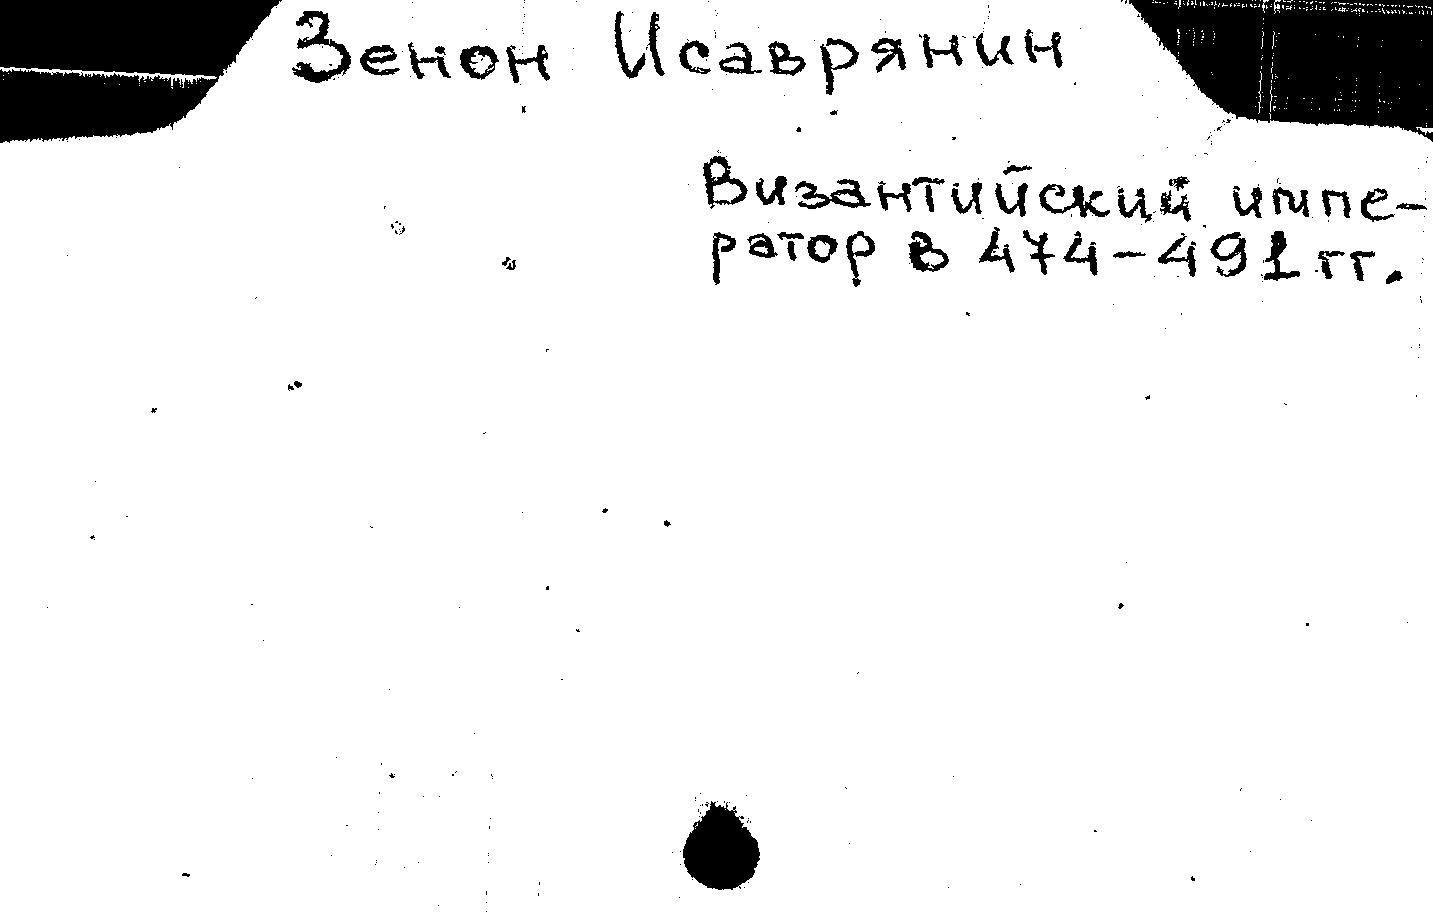 Зенон Исаврянин
Византийский импе-
ратор в 474-491 гг.